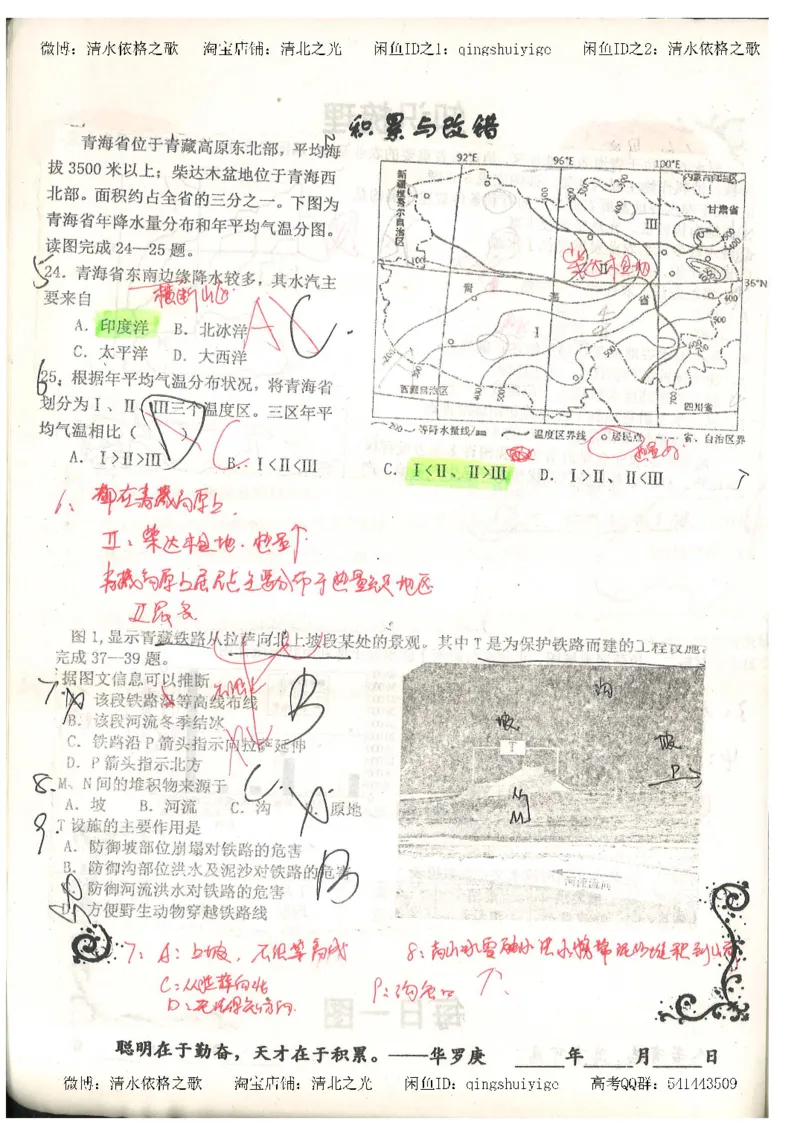 微博：清水依格之歌 淘宝店铺：清北之光 闲鱼ID之1：qingshuiyige 闲鱼ID之2：清水依格之歌
积累与改错
青海省位于青藏高原东北部，平均海
拔 3500 米以上；柴达木盆地位于青海西
北部。面积约占全省的三分之一。下图为
青海省年降水量分布和年平均气温分图。
读图完成 24—25 题。
5
24．青海省东南边缘降水较多，其水汽主
要来自
横断山区
A．印度洋 B．北冰洋
C．太平洋 D．大西洋
A C
6
25．根据年平均气温分布状况，将青海省
划分为Ⅰ、Ⅱ、Ⅲ三个温度区。三区年平
均气温相比（ ）
D A C
A．Ⅰ>Ⅱ>Ⅲ B．Ⅰ<Ⅱ<Ⅲ C．Ⅰ<Ⅱ、Ⅱ>Ⅲ D．Ⅰ>Ⅱ、Ⅱ<Ⅲ
92°E 96°E 100°E
新疆维吾尔自治区
内蒙古自治区
甘肃省
Ⅲ
柴达木盆地
36°N
青 海 省
Ⅰ
西藏自治区
四川省
200 等降水量线/mm 温度区界线 居民点 省、自治区界
6：都在青藏高原上．
Ⅱ：柴达木盆地．热量↑
青藏高原上居民点主要分布于热量好地区
Ⅱ最多
图 1，显示青藏铁路从拉萨向北上坡段某处的景观。其中 T 是为保护铁路而建的工程设施。
完成 37—39 题。
7．据图文信息可以推断
A．该段铁路沿等高线布线
B．该段河流冬季结冰
C．铁路沿 P 箭头指示向拉萨延伸
D．P 箭头指示北方
B
8．M、N 间的堆积物来源于
A．坡 B．河流 C．沟 D．原地
C．
9．T 设施的主要作用是
A．防御坡部位崩塌对铁路的危害
B．防御沟部位洪水及泥沙对铁路的危害
C．防御河流洪水对铁路的危害
D．方便野生动物穿越铁路线
B
沟
坡
T
坡
P
N
M
河流流向
7：A：上坡，不沿等高线
C：从拉萨向北
8：高山冰雪融水洪水携带泥沙堆积到山前
P：沟谷口
聪明在于勤奋，天才在于积累。——华罗庚 ____年____月____日
微博：清水依格之歌 淘宝店铺：清北之光 闲鱼ID：qingshuiyige 高考QQ群：541443509